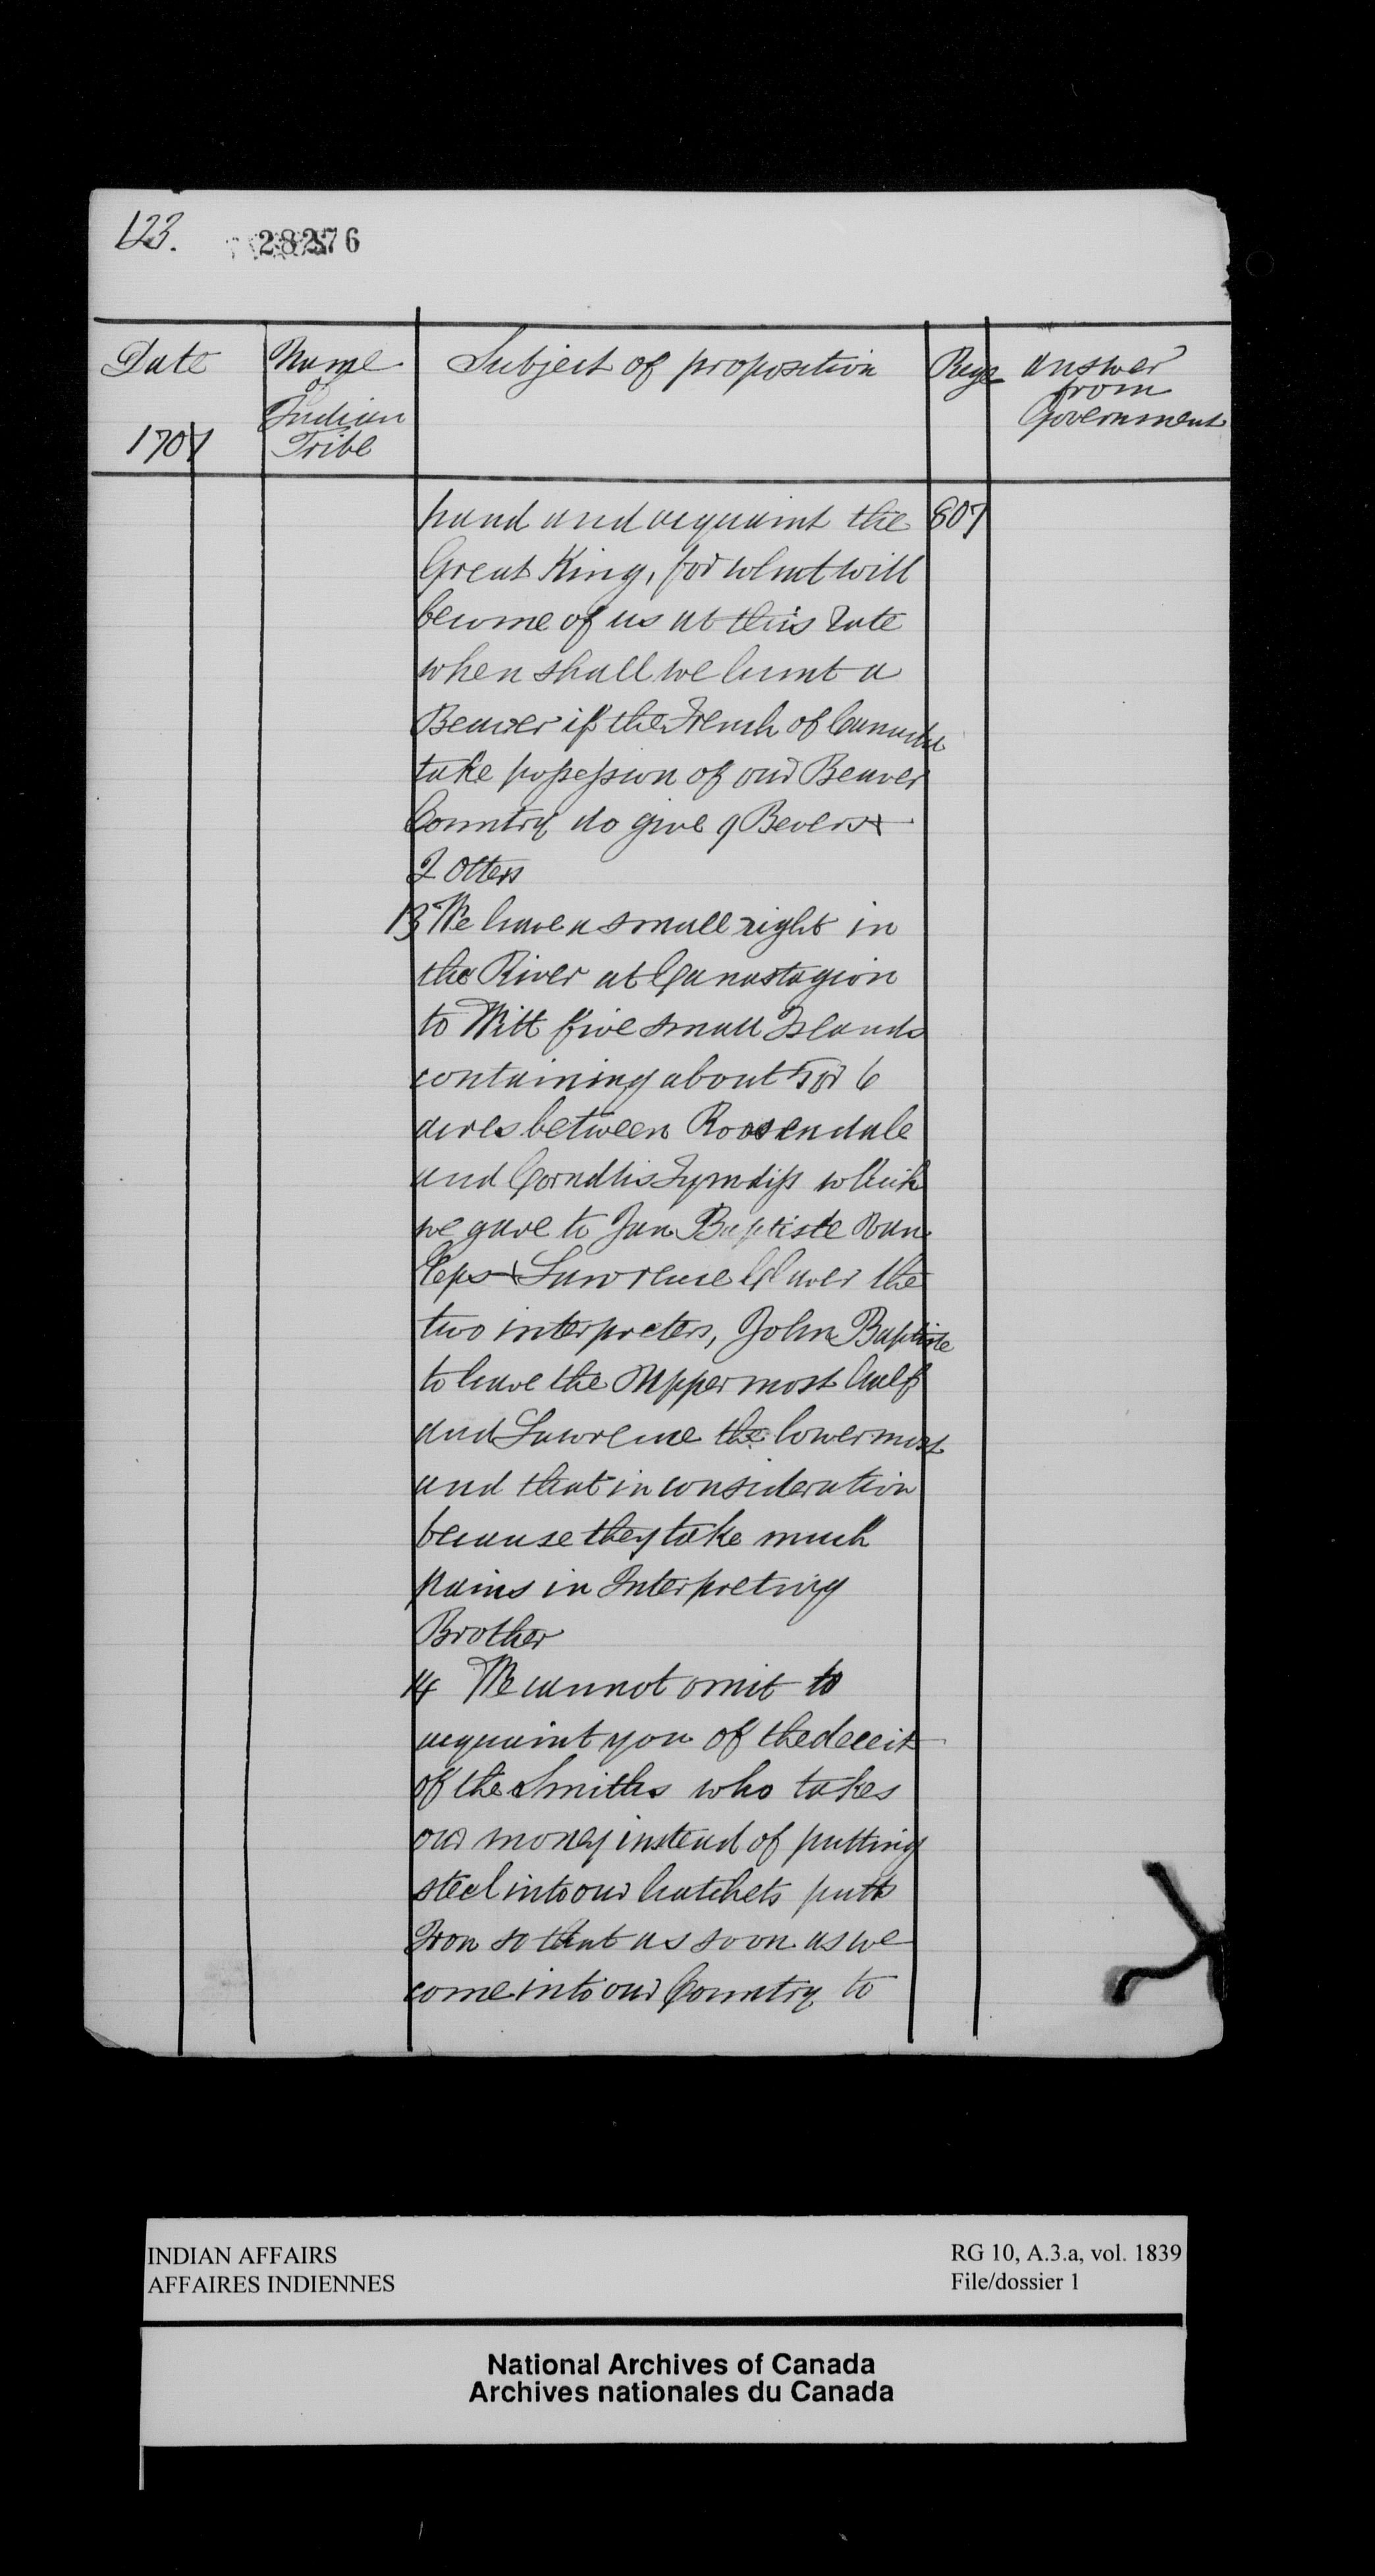 123.
28276
Date
Name
of
Indian
Tribe
Subject of proposition
Page
answer
from
Government
1701
hand and acquaint the
807
Great King, for what will
become of us at this rate
when shall we hunt a
Beaver if the French of Canada
take possession of our Beaver
Country do give 9 Bevers &
2 Otters
13 We have a small right in
the River at Canastagion
to Witt five small Islands
containing about 5 or 6
acres between Rosendale
and Cornelis which
we gave to Jan Baptiste van
Eps & Lawrence Claver the
two interpreters, John Baptiste
to have the uppermost half
and Lawrence the lowermost
and that in consideration
because they take much
pains in Interpreting
Brother
14 We cannot omit to
acquaint you of the deceit
of the Smiths who takes
our money instead of putting
steel into our hatchets putts
Iron so that as soon as we
come into our Country to
INDIAN AFFAIRS
AFFAIRES INDIENNES
RG 10, A.3.a, vol. 1839
File/dossier 1
National Archives of Canada
Archives nationales du Canada